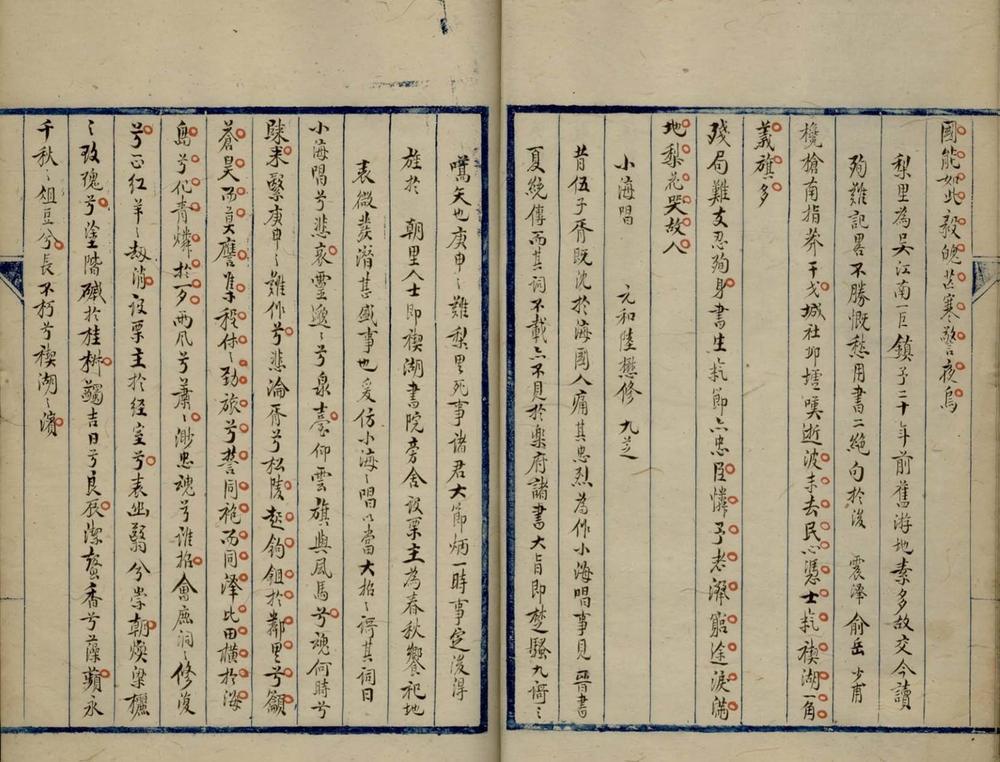 國能如此毅魄苦寒警夜烏
梨里為吳江南一巨鎮予二十年前舊游地素多故交今讀
殉難記畧不勝慨愁用書二絕句於後 震澤俞岳 少甫
欃槍南指莽干戈城社邱墟嘆逝波未去民心憑士氣禊湖一角
義旗多
殘局難支忍殉身書生氣節亦忠臣憐予老淚窮途淚滿
地梨花哭故人
小海唱 元和陸懋修 九芝
昔伍子胥既沈於海國人痛其忠烈為作小海唱事見晉書
夏統傳而其詞不載亦不見於樂府諸書大旨即楚騷九謌之
嚆矢也庚申之難梨里死事諸君大節炳一時事定後得
旌於 朝里人士即禊湖書院旁舍設栗主為春秋饗祀地
表微叢潛甚盛事也爰仿小海之唱以當大招之謌其詞曰
小海唱兮悲哀靈邈之兮泉臺仰雲旗與風馬兮魂何時兮
歸來繄庚申之難作兮悲淪胥兮松陵趂鉤鉏於鄰里兮籲
蒼昊而莫譍集穀伏之勁旅兮誓同袍而同澤比田橫於海
島兮化青燐於一夕雨風兮蕭之渺忠魂兮誰招會庶洞之修復
兮正紅羊之劫消設栗主於經室兮表幽翳兮崇朝煥梁欐
之玫瑰兮塗階墄於桂椒蠲吉日兮良辰潔蜜香兮藻蘋永
千秋之俎豆兮長不朽兮禊湖之濱